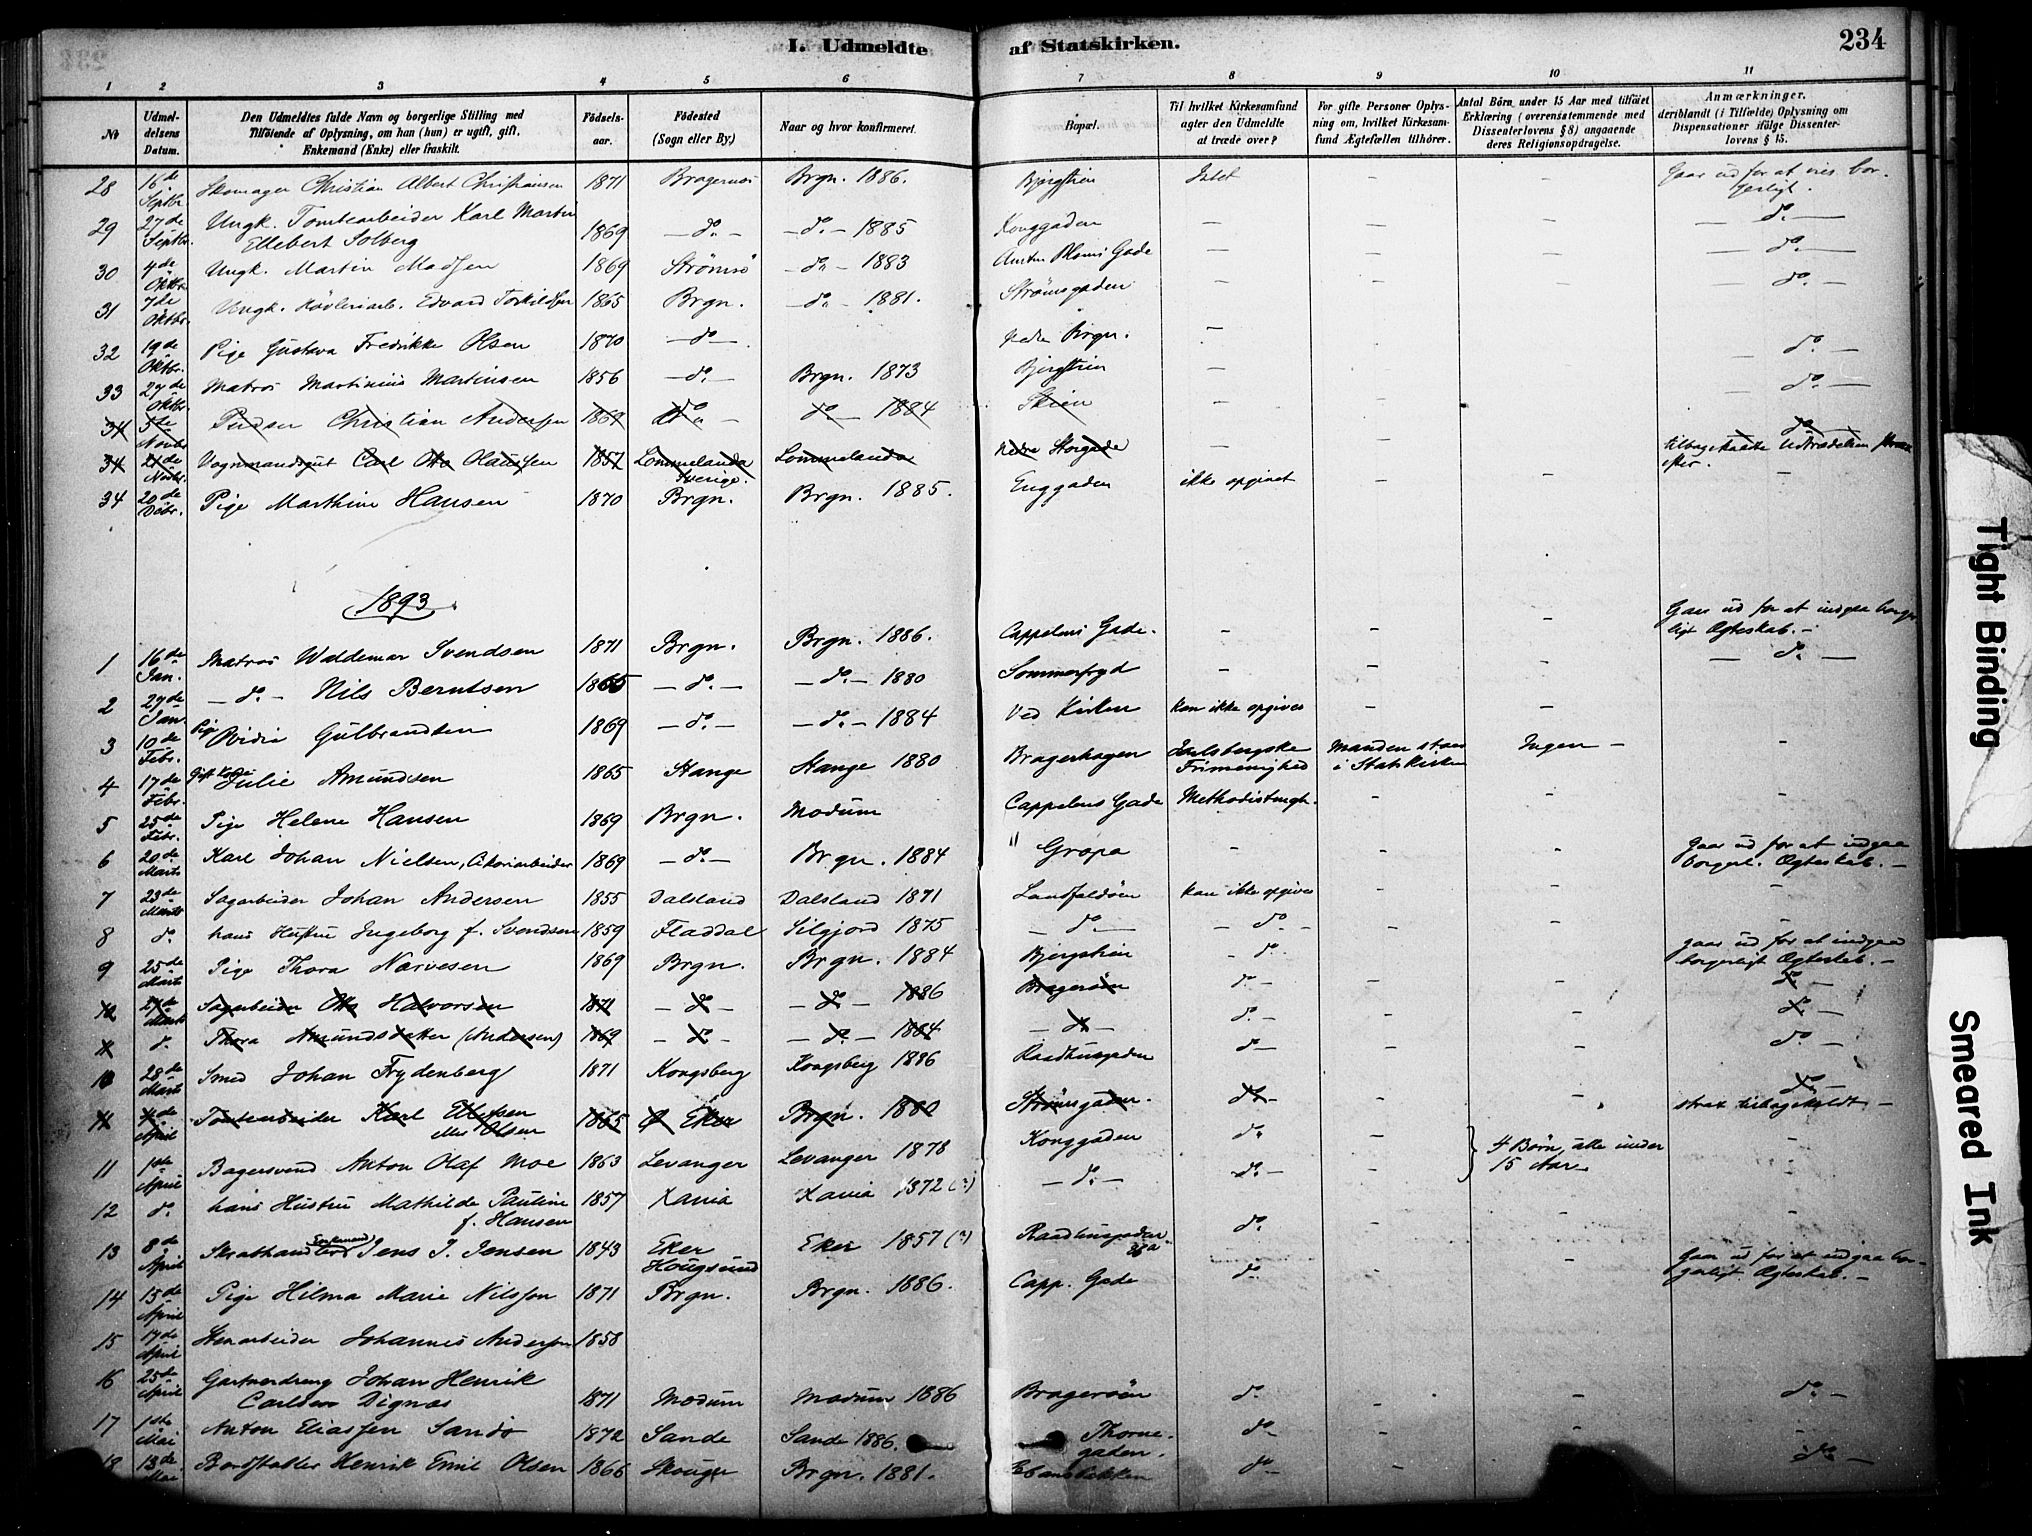 I. Udmeldte af Statskirken. 234
1 2 3 4 5 6 7 8 9 10 11
№ Udmeldelsens Datum. Den Udmeldtes fulde Navn og borgerlige Stilling med Tilföiende af Oplysning, om han (hun) er ugift, gift, Enkemand (Enke) eller fraskilt. Födselsaar. Födested (Sogn eller By.) Naar og hvor konfirmeret. Bopæl. Til hvilket Kirkesamfund agter den Udmeldte at træde over? For gifte Personer Oplysning om, hvilket Kirkesamfund Ægtefællen tilhörer. Antal Börn under 15 Aar med tilföiet Erklæring (overensstemmende med Dissenterlovens § 8) angaaende deres Religionsopdragelse. Anmærkninger, deriblandt (i Tilfælde) Oplysning om Dispensationer ifölge Dissenterlovens § 15.
28 16de Septbr. Skomager Christian Albert Christiansen 1871 Bragernes Brgn. 1886. Bjergstien Intet - - Gaar ud for at vies borgerligt.
29 27de Septbr. Ungk. Tomtearbeider Karl Martin Ellebert Solberg 1869 — do — — do — 1885 Konggaden — — — — do —
30 4de Oktbr. Ungk. Martin Madsen 1869 Strömsö — do — 1883 Gade — — — — do —
31 7de Oktbr. Ungk. Edvard Torkildsen 1865 Brgn. — do — 1881. Strömsgaden — — — do —
32 19de Oktbr. Pige Gustava Fredrikke Olsen 1870 — do — Nedre Brgn. — - - — do —
33 27de Oktbr. Matros Martinius Martinsen 1856 — do — Brgn. 1873 Bjergstien — - - — do —
34 5te Novbr. Christian Andersen 1867 do — do — 1884 Skien — - - do
34 21de Novbr. Vognmandsgut Carl Otto Claussen 1857 Lommelanda Sverige. Lommelanda Nedre Storgade — - tilbagekaldte Udtrædelsen strax efter.
34 20de Dcbr. Pige Marthine Hansen 1870 Brgn. Brgn. 1885. Enggaden ikke opgivet - - -
1893.
1 16de Jan. Matros Waldemar Svendsen 1871 Brgn. Brgn. 1886. Cappelens Gade. - - - Gaar ud for at indgaa borgerligt Ægteskab. -
2 27de Jan. — do — Nils Berntsen 1865 — do — — do — 1880 Sommerfryd - - - — do —
3 10de Febr. Pige Ovidia Gulbrandsen 1869 — do — — do — 1884 Ved Kirken kan ikke opgives - -
4 17de Febr. Gift Kone Julie Amundsen 1865 Stange Stange 1880 Bragerhagen Jarlsbergske Frimenighed Manden staar i Statskirken Ingen — -
5 25de Febr. Pige Helene Hansen 1869 Brgn. Modum Cappelens Gade Methodistmgh. - - -
6 20de Marts Karl Johan Nielsen, Cikoriarbeider 1869 — do — Brgn. 1884 " Gropa - - - Gaar ud for at indgaa borgerl. Ægteskab. —
7 23de Marts Sagarbeider Johan Andersen 1855 Dalsland Dalsland 1871 Landfaldöen kan ikke opgives - - -
8 do hans Hustru Ingeborg f. Svendsen 1859 Fladdal Silgjord 1875 — do — — do — - - -
9 25de Marts Pige Thora Narvesen 1869 Brgn. Brgn. 1884 Bjergstien — do - - gaar ud for at indgaa borgerligt Ægteskab. —
10 27de Marts Sagarbeider Otto Halvorsen 1871 — do — — do — 1886 Bragerøen do — - - do —
11 do Thora Amundsdatter (Andersen) 1869 — do — — do — 1884 — do — do — - - do —
10 28de Marts Smed Johan Frydenberg 1871 Kongsberg Kongsberg 1886 Raadhusgaden do — - - do —
11 4de April Tomtearbeider Karl Ellefsen ell. Olsen 1865 Ø Eker Brgn. 1880 Strömsgaden. do — - - do strax tilbagekaldt —
11 1ste April Bagersvend Anton Olaf Moe 1863 Levanger Levanger 1878 Konggaden do - } 4 Børn, alle under 15 Aar -
12 do hans Hustru Mathilde Pauline f. Hansen 1857 Xania Xania 1872 (?) — do — do — - -
13 8de April Enkemand Jens J. Jensen 1843 Eker Hougsund Eker 1857 (?) Raadhusgaden do - - -
14 15de April Pige Hilma Marie Nilsson 1871 Brgn. Brgn. 1886. Capp. Gade do - - Gaar ud for at indgaa borgerligt Ægteskab. —
15 17de April Stenarbeider Johannes Andersen 1858
16 25de April Gartnerdreng Johan Henrik Carlsen Dignæs 1871 Modum Modum 1886 Bragerøen do - - do —
17 1ste Mai Anton Eliassen Sandö 1872 Sande Sande 1886. Thornegaden. do — - - -
18 13de Mai Bordstabler Henrik Emil Olsen 1866 Skouger Brgn. 1881. Ebansbakken do — - - do —
Tight Binding
Smeared Ink